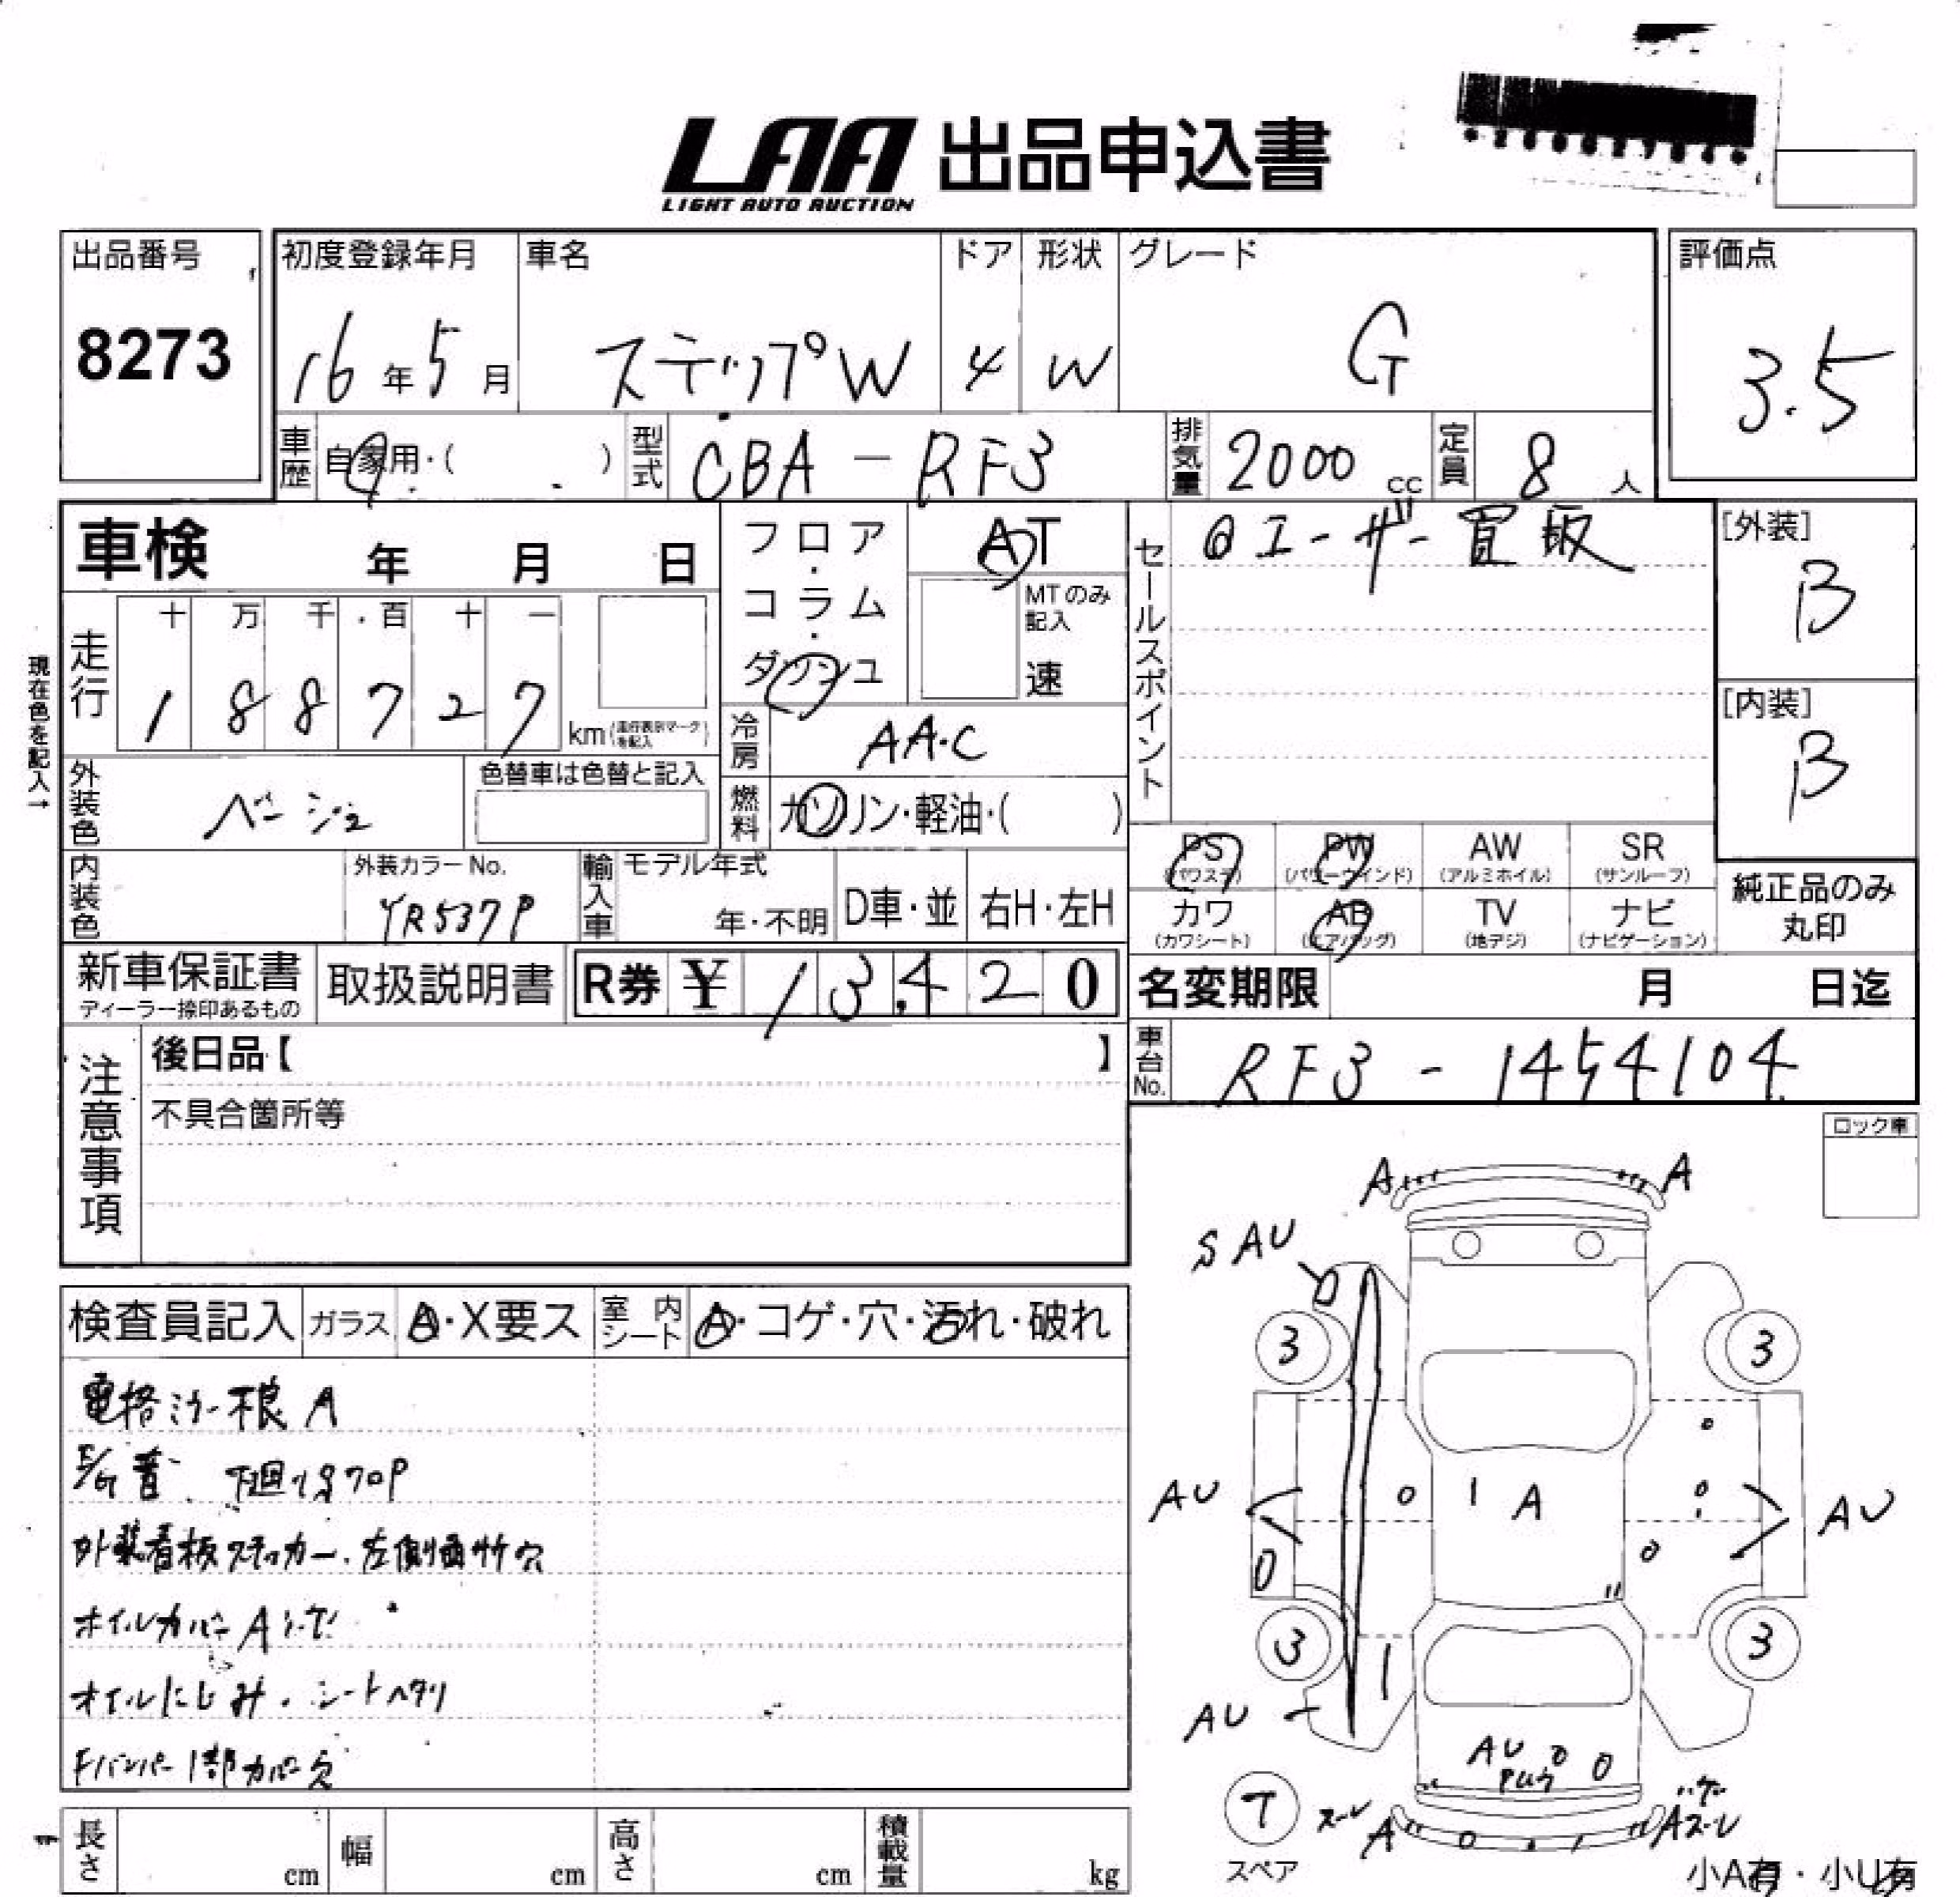 LAA 出品申込書
LIGHT AUTO AUCTION
出品番号
8273
初度登録年月
16年5月
車名
ステップW
ドア
4
形状
W
グレード
G
評価点
3.5
車歴 自家用・( )
型式 CBA-RF3
排気量 2000cc
定員 8人
車検 年 月 日
フロア・コラム・ダッシュ
AT
MTのみ記入
速
セールスポイント
@ユーザー買取
[外装]
B
[内装]
B
現在色を記入→
走行
十 万 千 百 十 一
1 8 8 7 2 7
km(走行表示マークを記入)
冷房 AA.C
外装色 ベージュ
色替車は色替と記入
燃料 ガソリン・軽油・( )
内装色
外装カラーNo.
YR537P
輸入車
モデル年式
年・不明
D車・並
右H・左H
PS (パワステ)
PW (パワーウインド)
AW (アルミホイル)
SR (サンルーフ)
カワ (カワシート)
AB (エアバッグ)
TV (地デジ)
ナビ (ナビゲーション)
純正品のみ丸印
新車保証書
ディーラー捺印あるもの
取扱説明書
R券 ¥ 13,420
名変期限 月 日迄
車台No. RF3-1454104
注意事項
後日品【 】
不具合箇所等
ロック車
検査員記入
ガラス A・X要ス
室内シート A・コゲ・穴・汚れ・破れ
電格ミラー不良 A
E/G音 下廻りS70P
外装看板ステッカー、左側面サケ穴
オイルカバーA
オイルにじみ・シートヘタリ
Fバンパー1部カバー欠
A A
S AU
3 3
AU O 1 A AU
3 3
AU
AU
T
スペア
ズーレ A
Aズーレ
小A有・小U有
長さ cm
幅 cm
高さ cm
積載量 kg